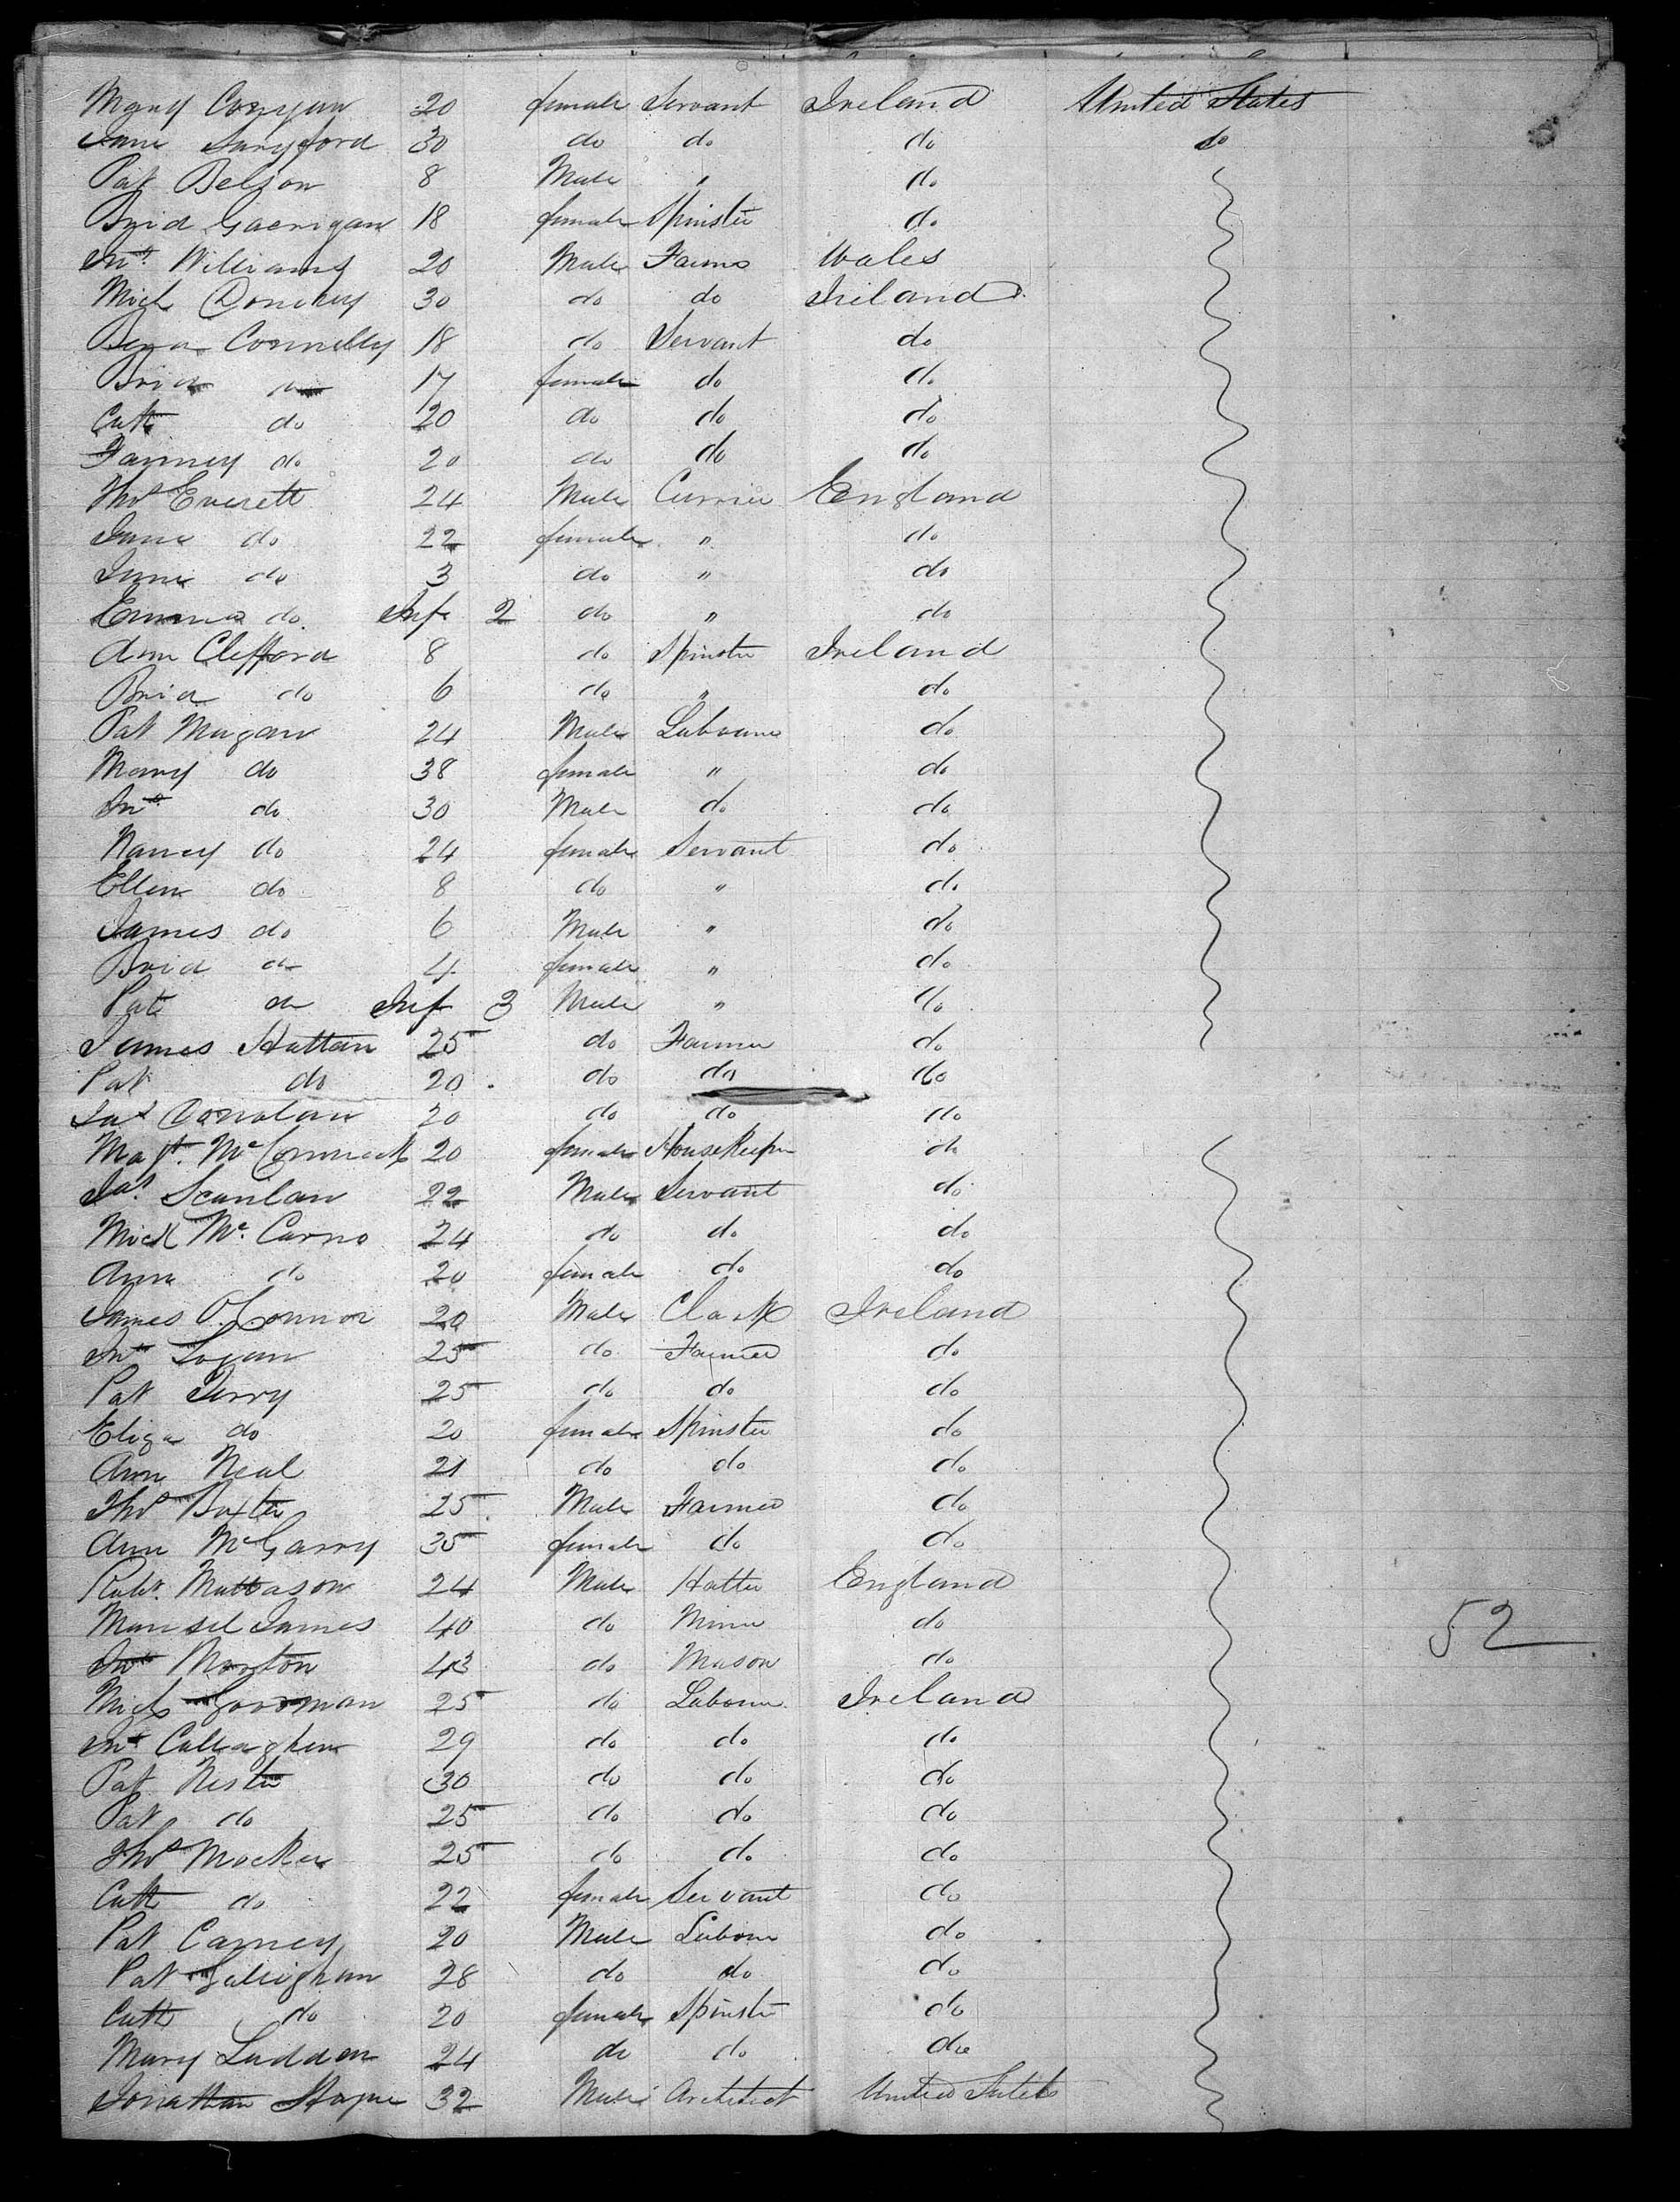 Mary Conyan 20 female Servant Ireland United States
Jane Langford 30 do do do do
Pat Belson 8 Male " do
Brid Gaerigan 18 female Spinster do
Jno. Williams 20 Male Farmo Wales
Mich 30 do do Ireland
Connelly 18 do Servant do
Brid do 17 female do do
Cath do 20 do do do
Fanney do 20 do do do
Thos Everett 24 Male Currier England
Jane do 22 female " do
Jane do 3 do " do
Emma do. Inf 2 do " do
Ann Clifford 8 do Spinster Ireland
Brid do 6 do " do
Pat Mugan 24 Male Labourer do
Mary do 38 female " do
Jno do 30 Male do do
Nancy do 24 female Servant do
Ellen do 8 do " do
James do 6 Male " do
Brid do 4 female " do
Pat do Inf 3 Male " do
James Hattan 25 do Farmer do
Pat do 20 do do do
Jas Donolan 20 do do do
Magt. McCormack 20 female HouseKeeper do
Jas. Scanlan 22 Male Servant do
Mick Mc. Carno 24 do do do
Ann do 20 female do do
James O.Connor 20 Male Clark Ireland
Jno Logan 25 do Farmer do
Pat Terry 25 do do do
Eliza do 20 female Spinster do
Ann Neal 21 do do do
Thos Baxter 25 Male Farmer do
Ann McGarry 35 female do do
Robt. Mattason 24 Male Hatter England
Mansel James 40 do Miner do
Jno Morton 43 do Mason do
Mich Gorman 25 do Labourer Ireland
Jno Callaghan 29 do do do
Pat Nester 30 do do do
Pat do 25 do do do
Thos Mocker 25 do do do
Cath do 22 female Servant do
Pat Carney 20 Male Labour do
Pat Galleighan 28 do do do
Cath do 20 female Spinster do
Mary Ladden 24 do do do
Jonathan 32 Male Architect United States
52